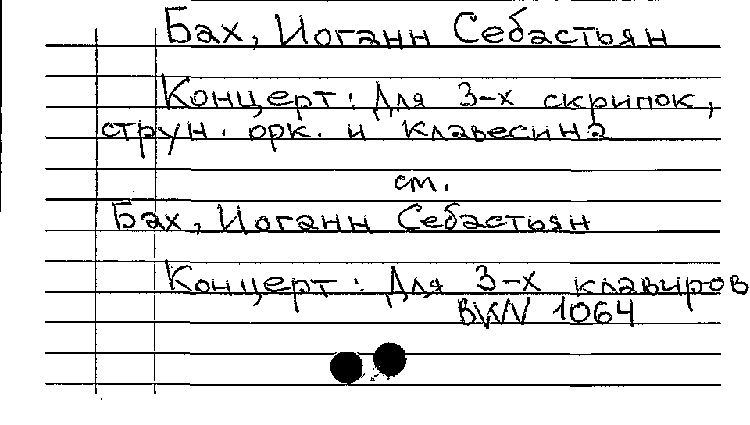 Бах, Иоганн Себастьян
Концерт: Для 3-х скрипок,
струн. орк. и клавесина
см.
Бах, Иоганн Себастьян
Концерт: Для 3-х клавиров
BWV 1064